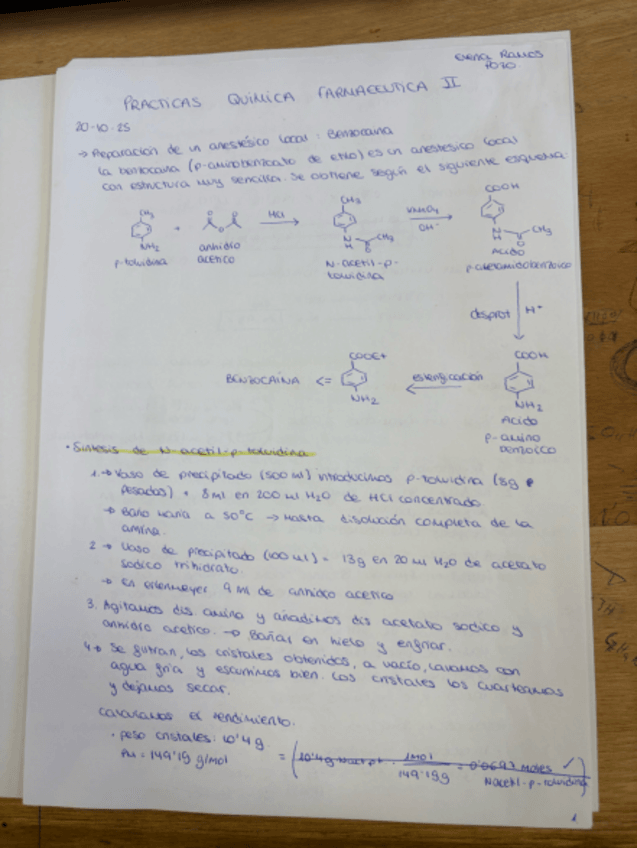 Elena Ramos
Pozo
PRACTICAS QUÍMICA FARMACEUTICA II
20-10-25
→ Preparación de un anestésico local: Benzocaína
La benzocaína (p-aminobenzoato de etilo) es un anestésico local
con estructura muy sencilla. Se obtiene según el siguiente esquema:
CH3
NH2
p-toluidina
+
O O
O
anhidro
acético
HCl
CH3
N
H
O
CH3
N-acetil-p-
toluidina
KMnO4
OH-
COOH
N
H
O
CH3
Acido
p-acetamidobenzoico
desprot
H+
COOH
NH2
Acido
p-amino
benzoico
esterificación
COOEt
NH2
<=
BENZOCAÍNA
· Síntesis de N-acetil-p-toluidina
1. → Vaso de precipitado (500 ml) introducimos p-toluidina (8g
pesados) + 8ml en 200 ml H2O de HCl concentrado.
→ Baño maría a 50°C → Hasta disolución completa de la
amina.
2 → Vaso de precipitado (100 ml) = 13g en 20 ml H2O de acetato
sódico trihidrato.
→ En erlenmeyer 9 ml de anhidro acético
3. Agitamos dis amina y añadimos dis acetato sódico y
anhidro acético. → Bañar en hielo y enfriar.
4 → Se filtran, los cristales obtenidos, a vacío, lavamos con
agua fría y escurrimos bien. Los cristales los cuarteamos
y dejamos secar.
Calculamos el rendimiento.
· peso cristales: 10'4 g.
Pm = 149'19 g/mol
= (10'4g Nacet pt · 1mol / 149'19g = 0'0697 moles ✓
Nacetil-p-toluidina)
1